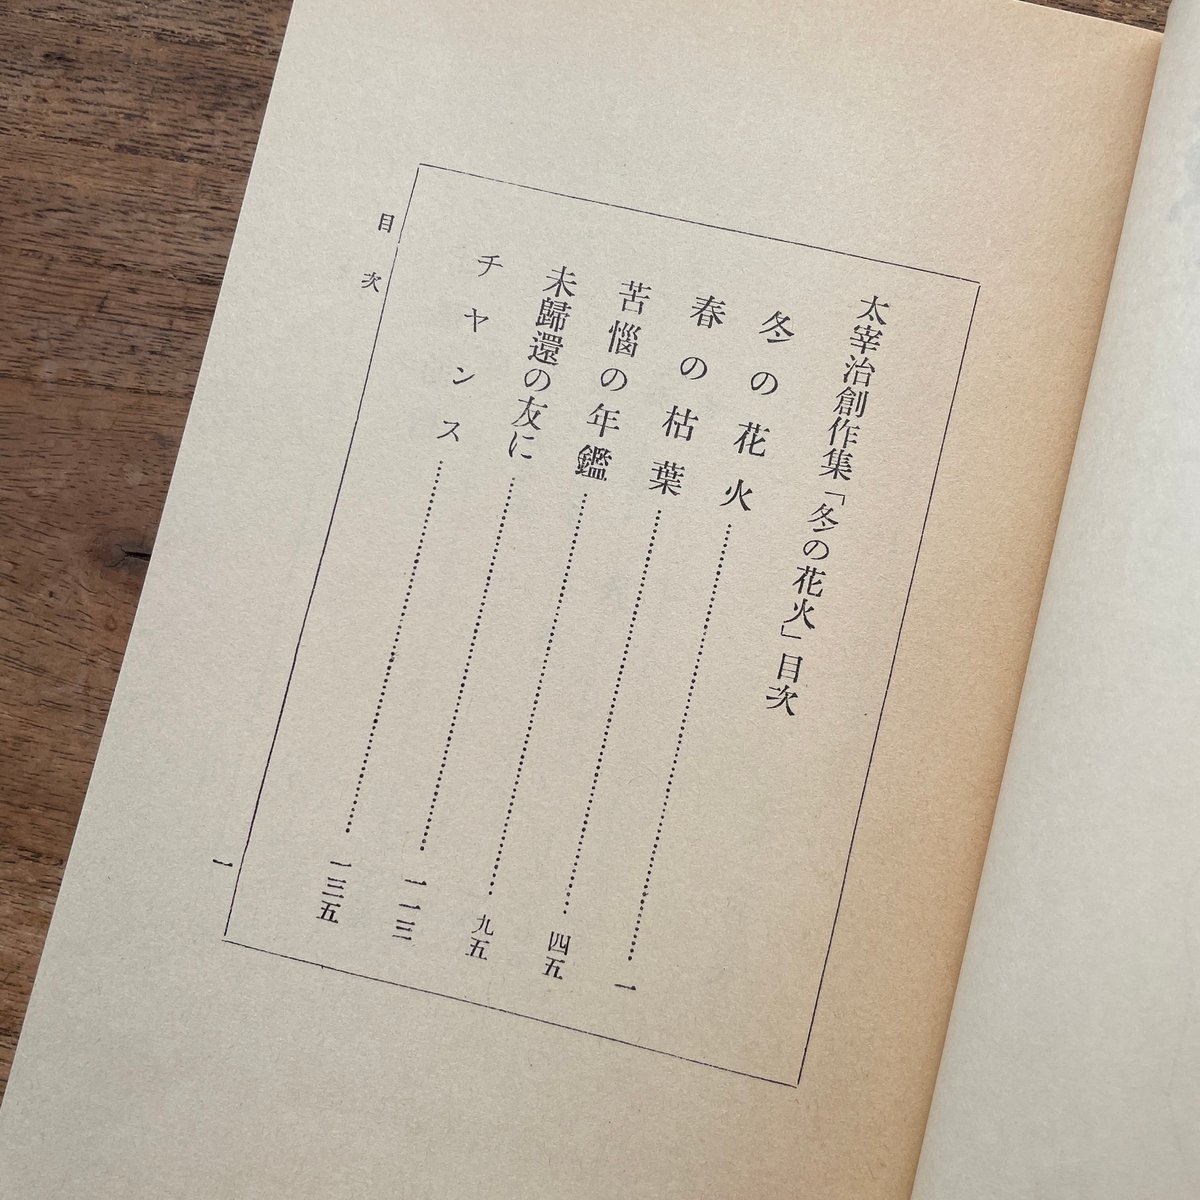 太宰治創作集「冬の花火」目次
冬の花火……………………一
春の枯葉……………………四五
苦惱の年鑑……………………九五
未歸還の友に……………………一一三
チヤンス……………………一三五
目次
一